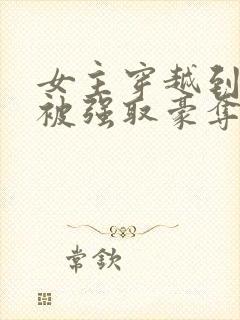 女主穿越到
被强取豪夺
常钦